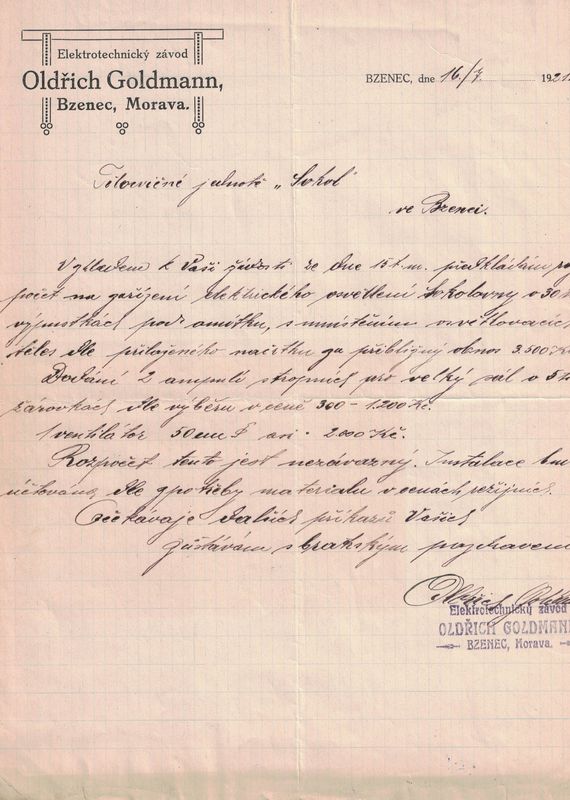 Elektrotechnický závod
Oldřich Goldmann,
Bzenec, Morava.
BZENEC, dne 16/7. 1921.
Tělocvičné jednotě „Sokol"
ve Bzenci.
Vzhledem k Vaší žádosti ze dne 15 t.m. předkládám
počet na zařízení elektrického osvětlení Sokolovny o 30
výpustkách pod omítku, s umístěním osvětlovacích
těles dle přiloženého náčrtku za přibližný obnos 3.500 Kč
Dodání 2 ampulí strojních pro velký sál o 5
žárovkách dle výběru v ceně 300 – 1.200 Kč.
1 ventilátor 50 cm asi 2.000 Kč.
Rozpočet tento jest nezávazný. Instalace
účtována dle spotřeby materialu v cenách režijních.
Očekávaje dalších příkazů Vašich
zůstávám s bratrským pozdravem
Oldřich
Elektrotechnický závod
OLDŘICH GOLDMANN
BZENEC, Morava.